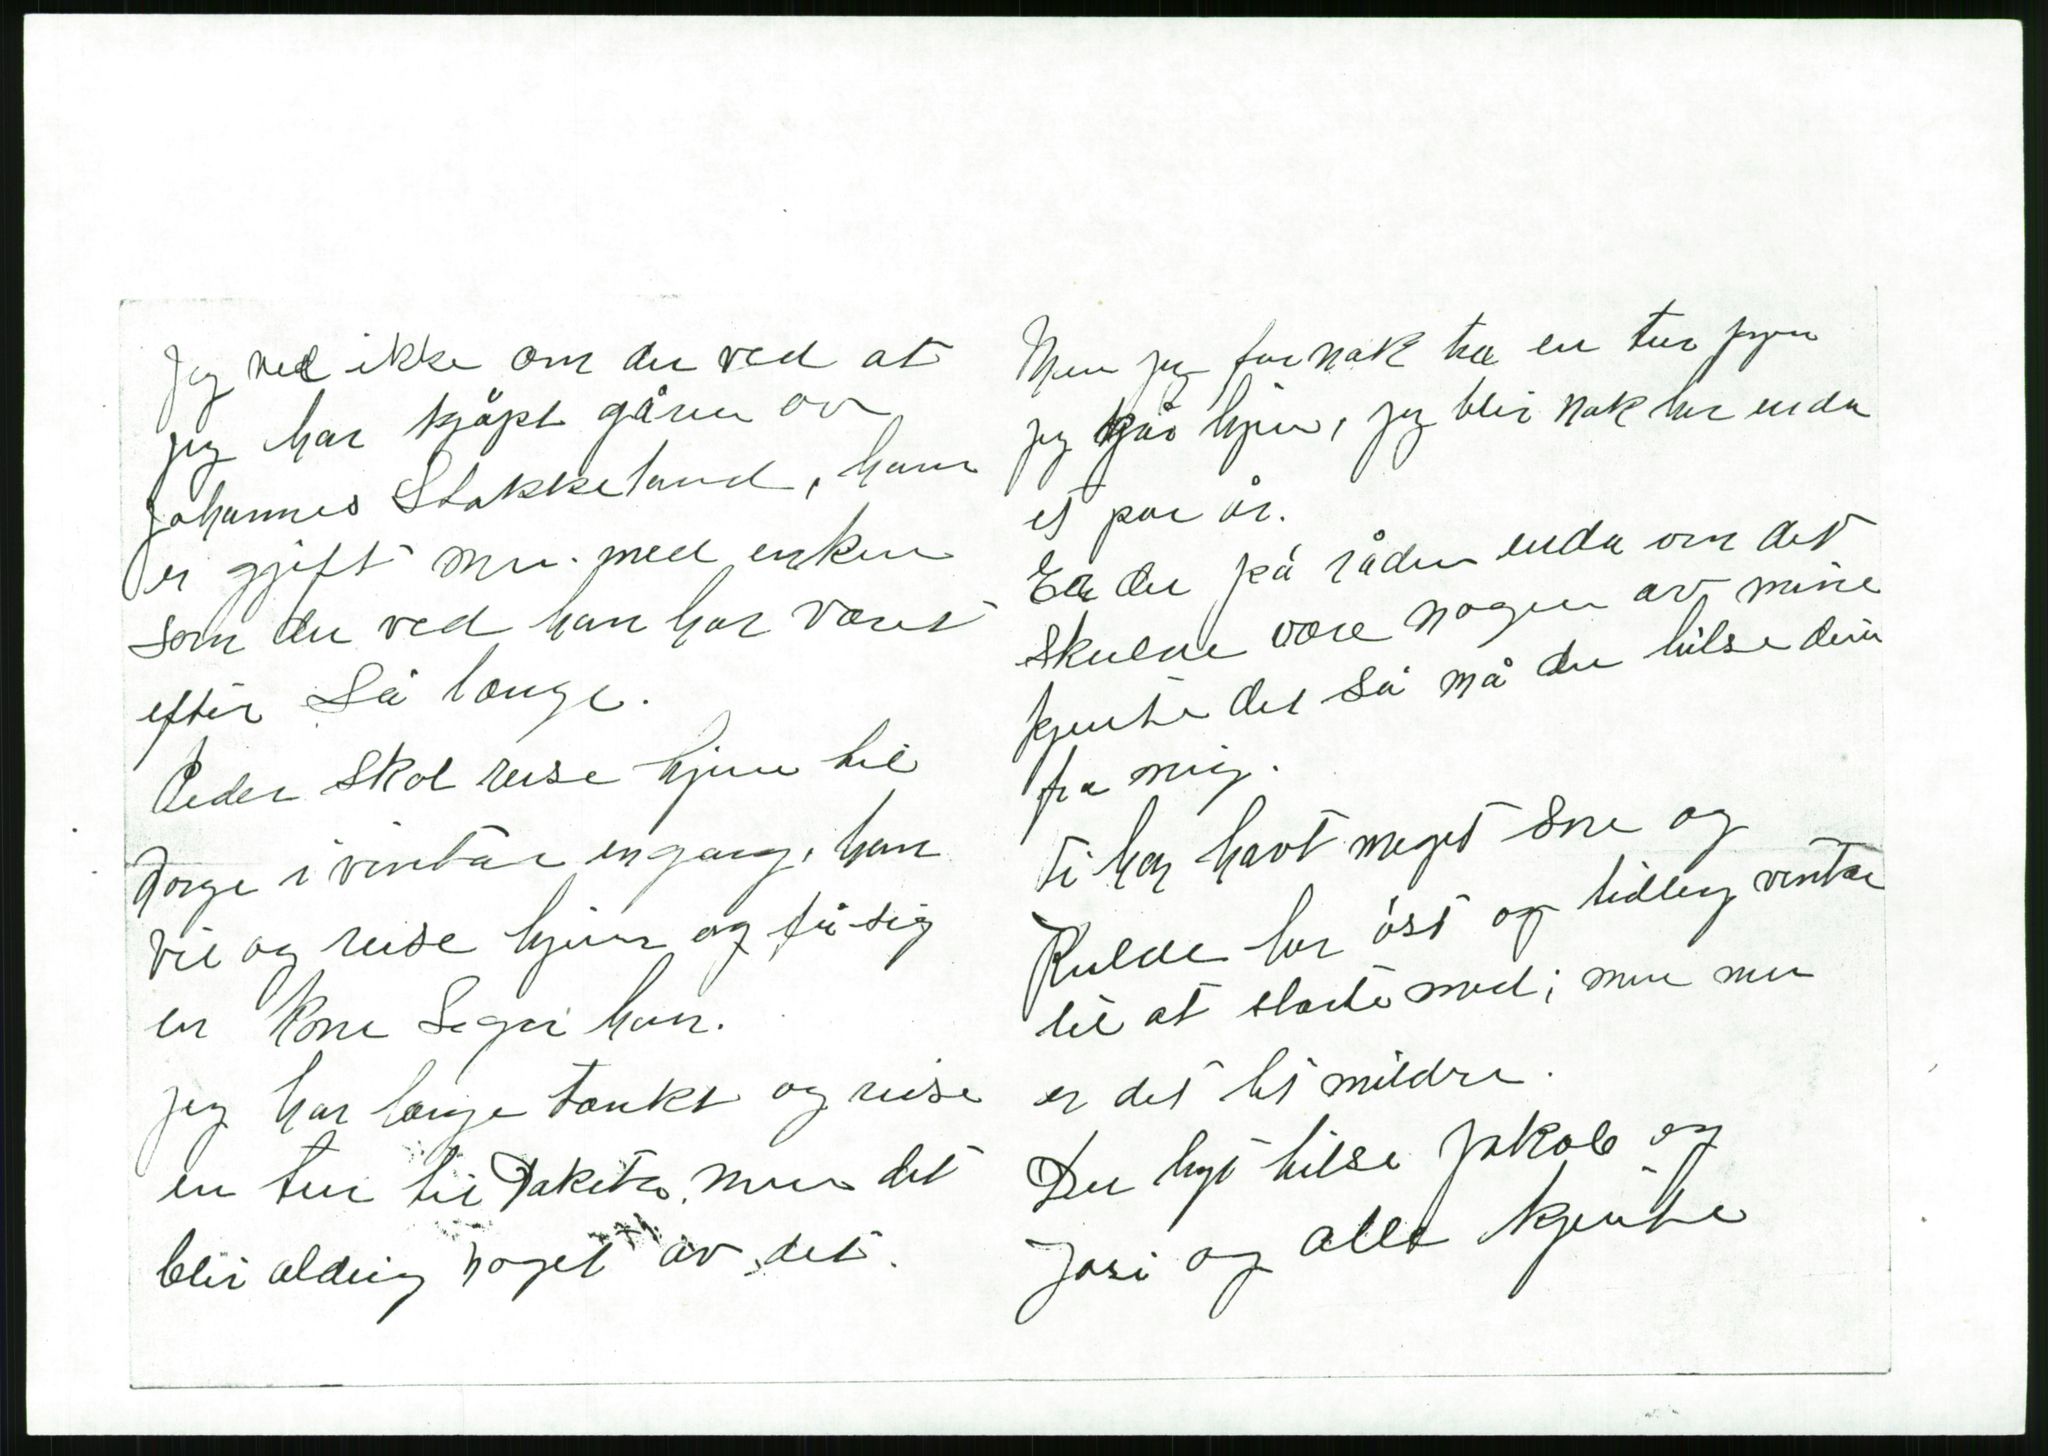 Jeg ved ikke om du ved at
jeg har kjøpt gåren av
Johannes Stakkeland, han
er gjift nu. med enken
som du ved han har været
efter så længe.
Peder skal reise hjem til
Norge i vinter engang, han
vil og reise hjem og få sig
en kone seger han.
jeg har længe tænkt og reise
en tur til Dakota, men det
blir aldrig noget av det.
Men jeg far nok ta en tur
jeg går hjem, jeg blir nok her enda
et par år.
Er du på råden enda om det
skulde være nogen av mine
kjente der så må du hilse dem
fra mig.
Vi har havt meget sne og
Kulde her øst og tidleg vinter
til at starte med; men nu
er det lit mildre.
Du hils Jakob og
Josi og alle kjente